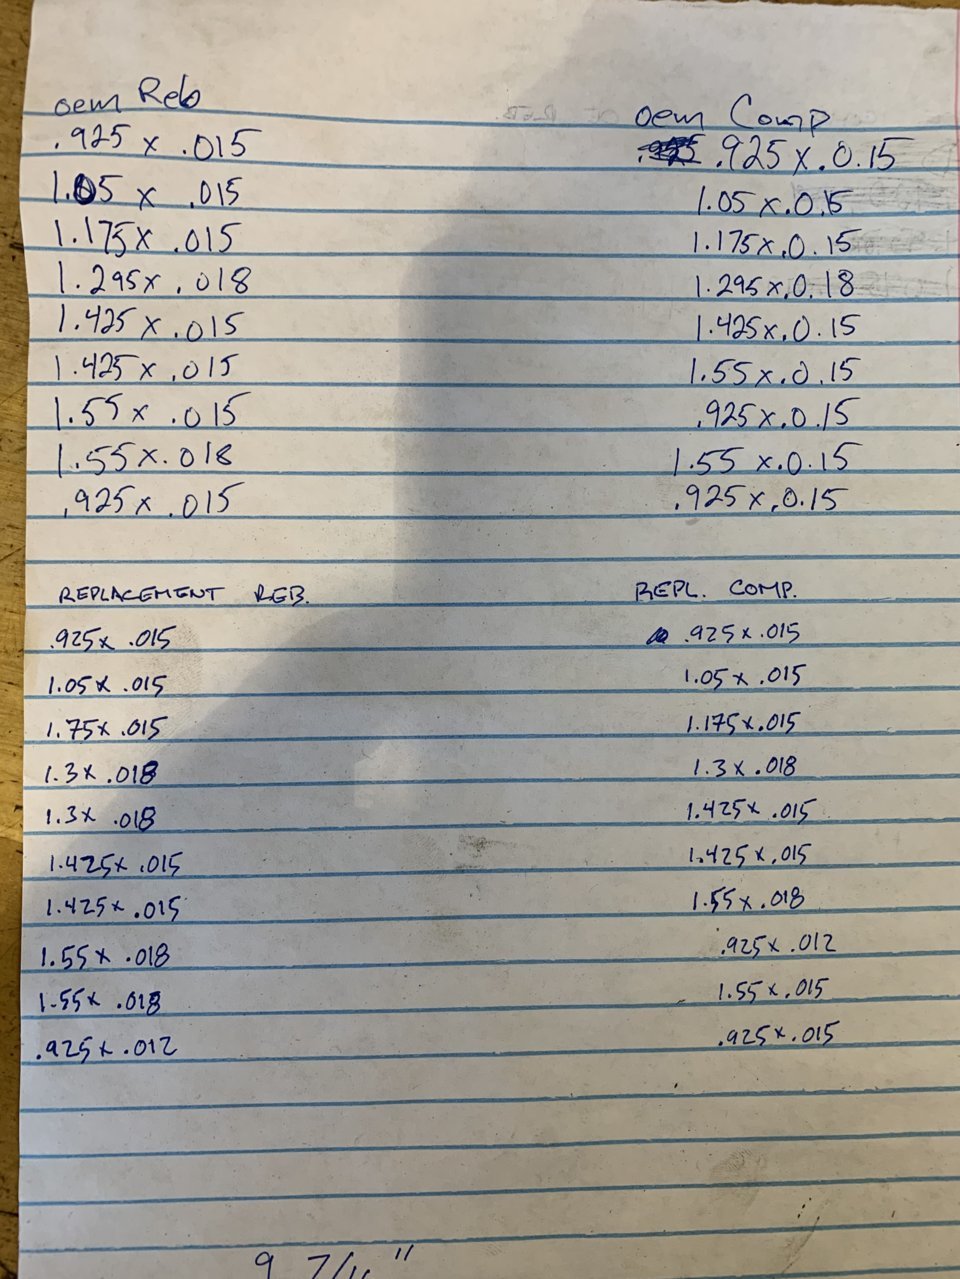 oem Reb
.925 x .015
1.05 x .015
1.175 x .015
1.295 x .018
1.425 x .015
1.425 x .015
1.55 x .015
1.55 x .018
.925 x .015
oem Comp
.925 x .0.15
1.05 x .0.15
1.175 x .0.15
1.295 x .0.18
1.425 x .0.15
1.55 x .0.15
.925 x .0.15
1.55 x .0.15
.925 x .0.15
REPLACEMENT REB.
.925 x .015
1.05 x .015
1.75 x .015
1.3 x .018
1.3 x .018
1.425 x .015
1.425 x .015
1.55 x .018
1.55 x .018
.925 x .012
REPL. COMP.
.925 x .015
1.05 x .015
1.175 x .015
1.3 x .018
1.425 x .015
1.425 x .015
1.55 x .018
.925 x .012
1.55 x .015
.925 x .015
9